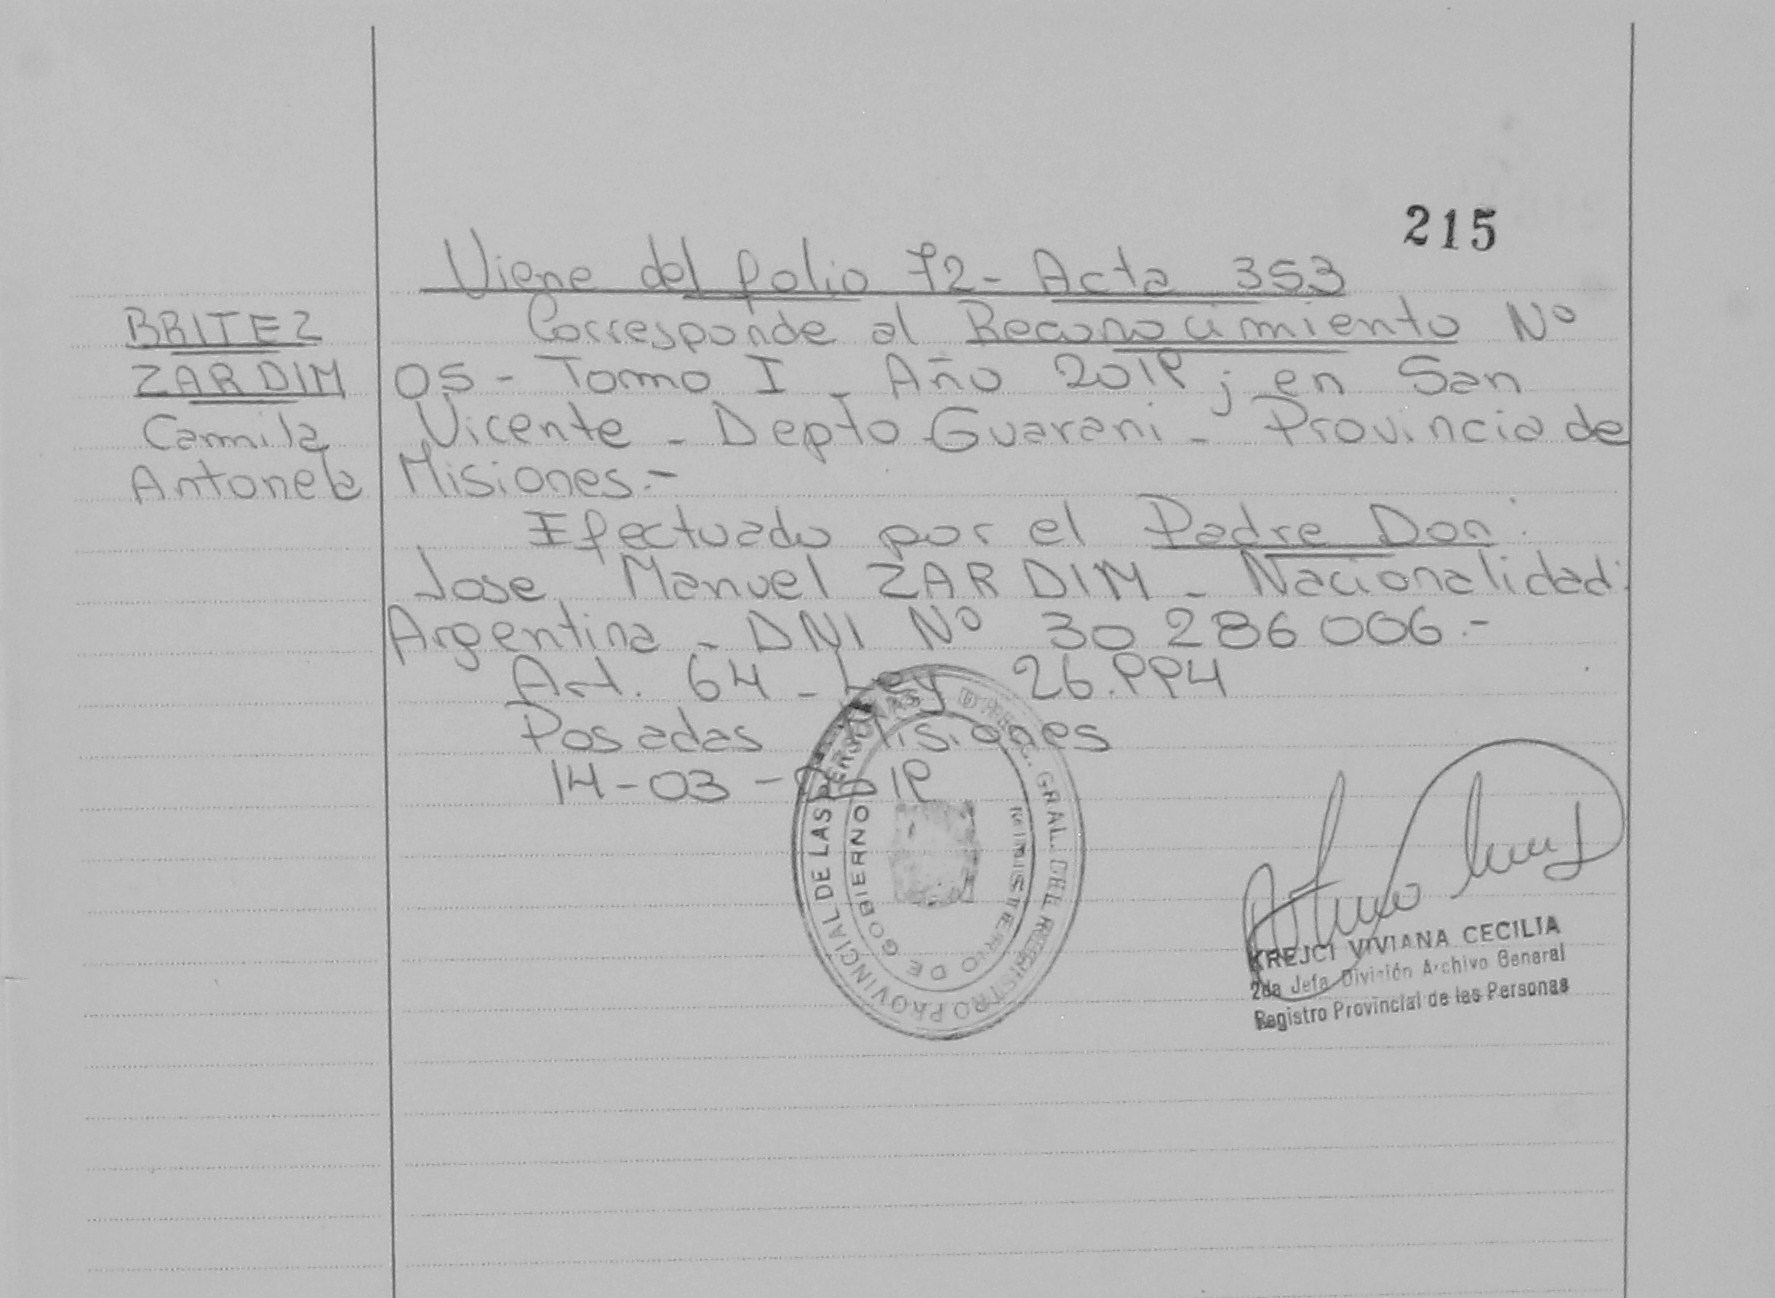 215
BRITEZ
ZARDIM
Camila
Antonela
Viene del folio 72 - Acta 353
Corresponde al Reconocimiento Nº
05 - Tomo I - Año 2019; en San
Vicente - Depto Guarani - Provincia de
Misiones.-
Efectuado por el Padre Don:
Jose Manuel ZARDIM - Nacionalidad:
Argentina - DNI Nº 30 286 006.-
Art. 64 - Ley 26.994
Posadas Misiones
14-03-2019
DIREC. GRAL. DEL REGISTRO PROVINCIAL DE LAS PERSONAS
MINISTERIO DE GOBIERNO
KREJCI VIVIANA CECILIA
2da Jefa División Archivo General
Registro Provincial de las Personas